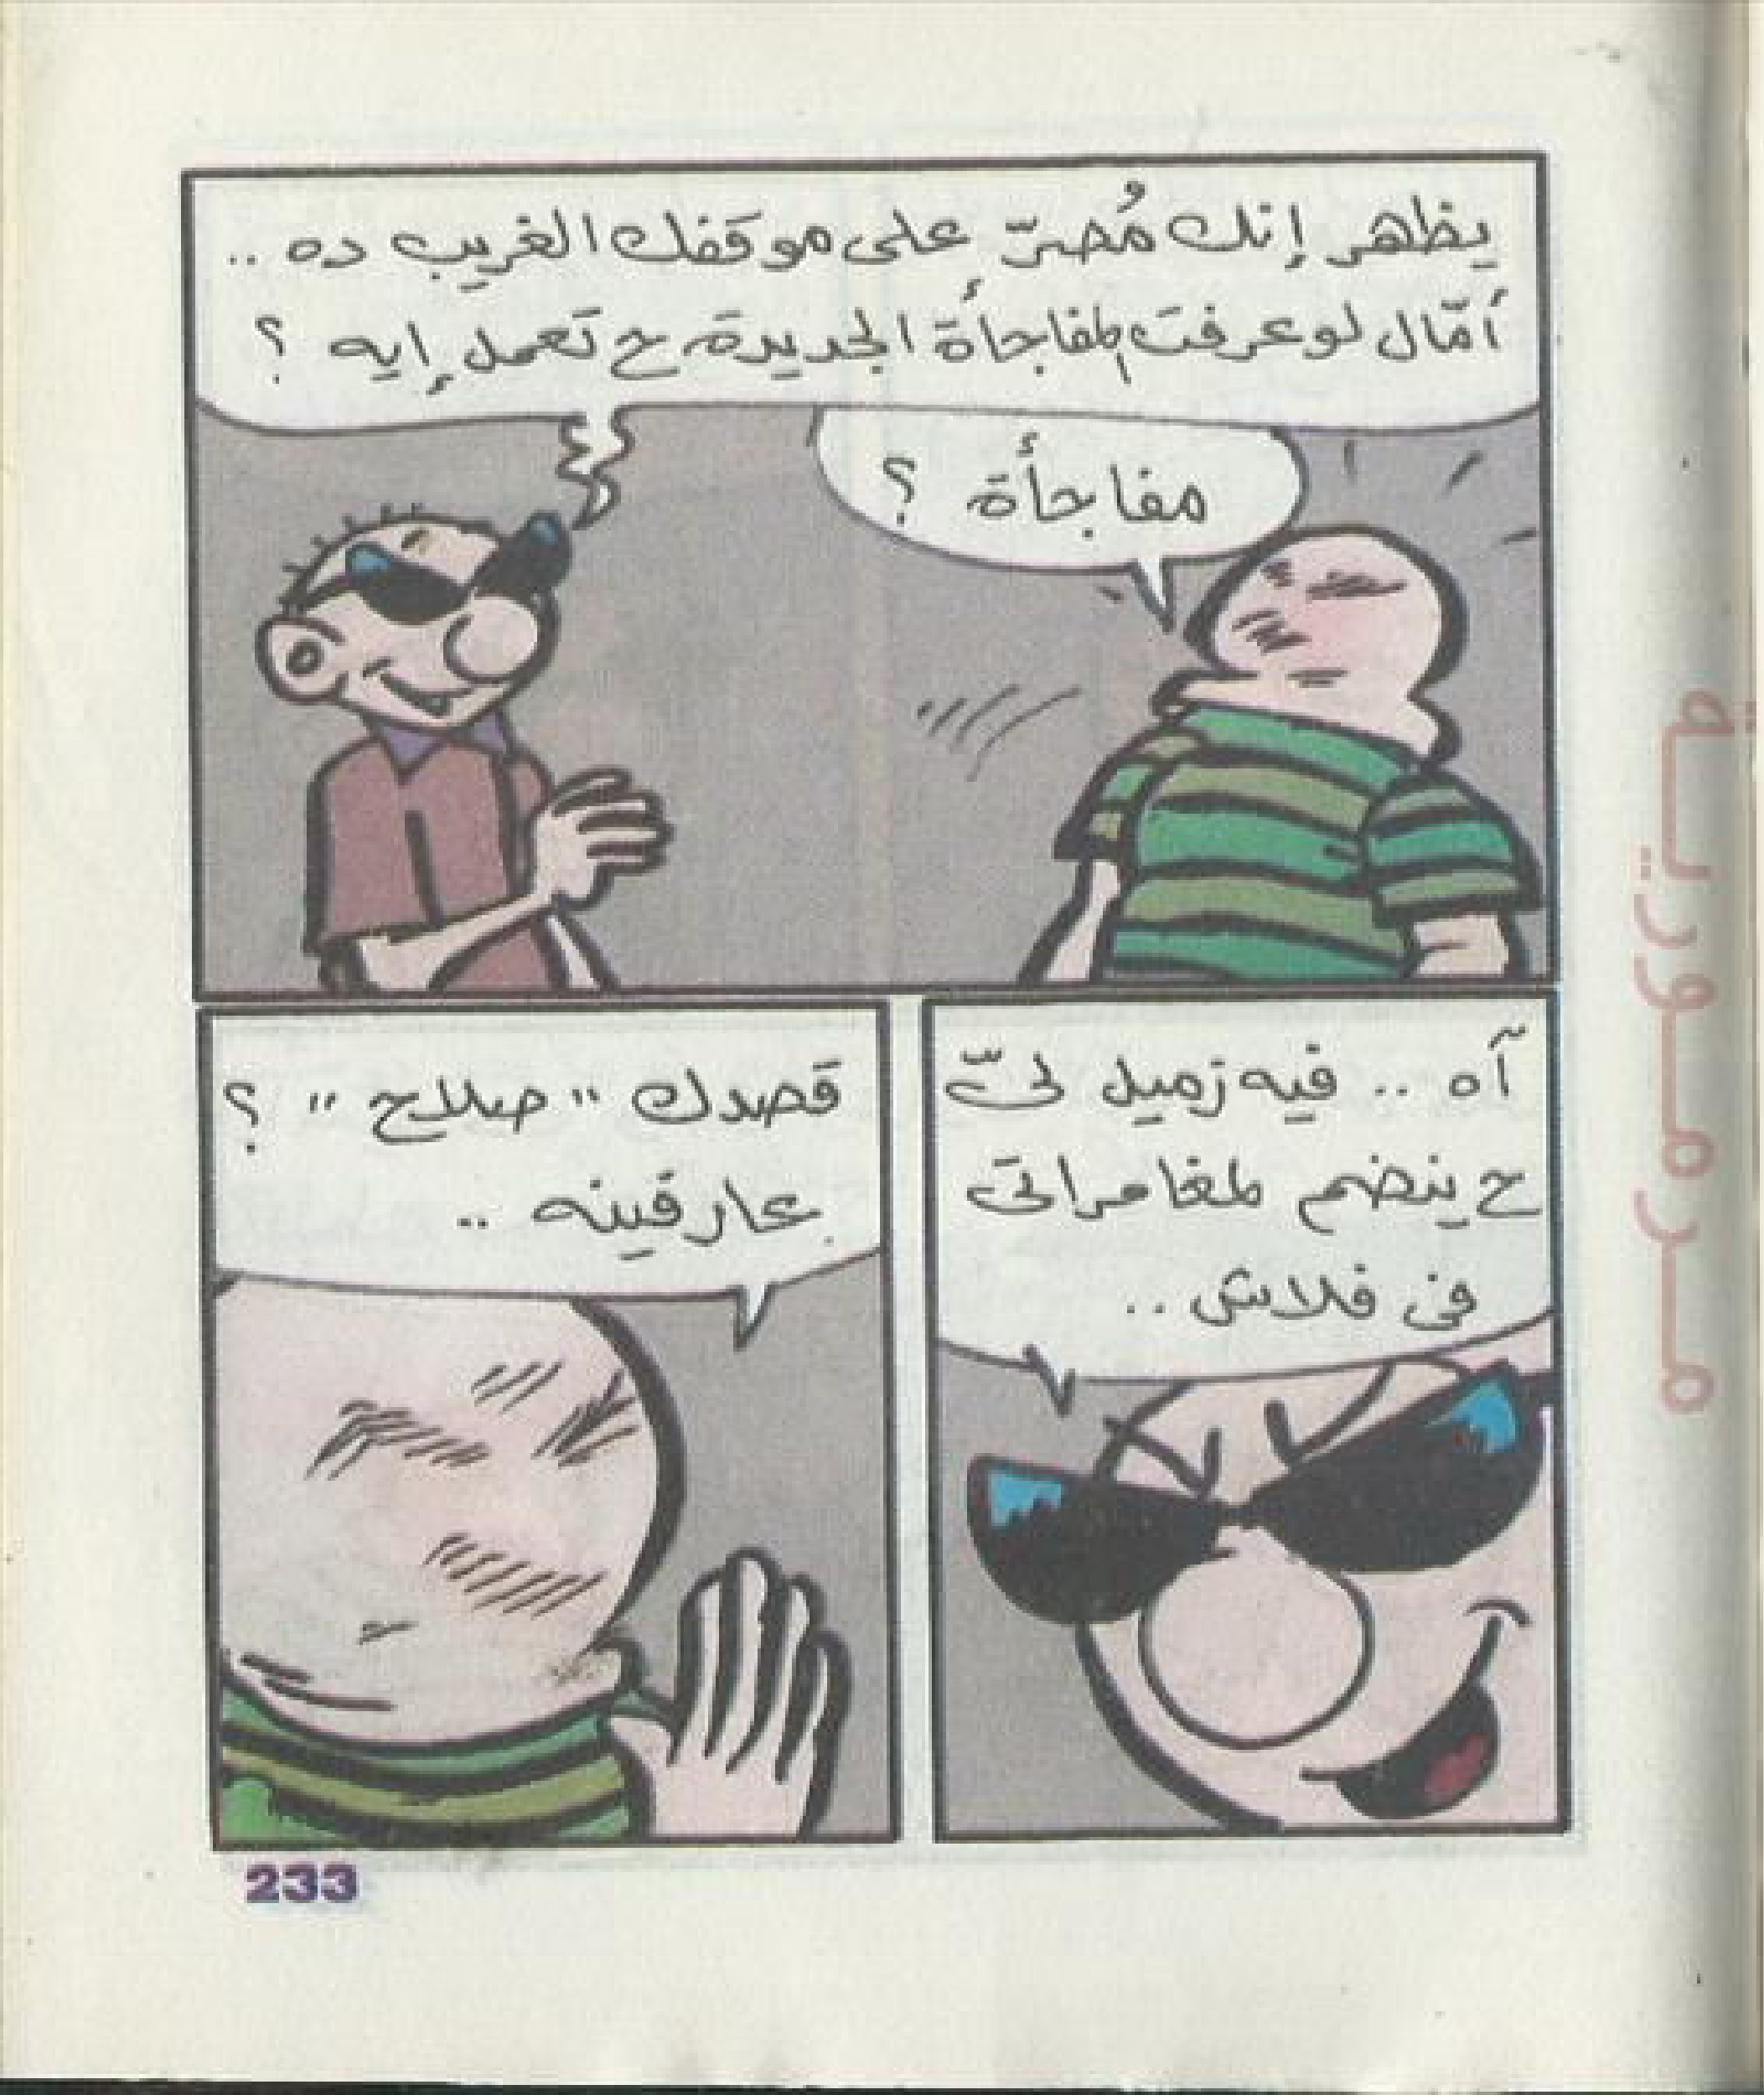 يظهر إنك مُصرّ على موقفك الغريب ده ..
أمّال لو عرفت المفاجأة الجديدة ح تعمل إيه ؟
مفاجأة ؟
آه .. فيه زميل لىّ
ح ينضم لمغامراتى
فى فلاش ..
قصدك " صلاح " ؟
عارفينه ..
233
مرمورية